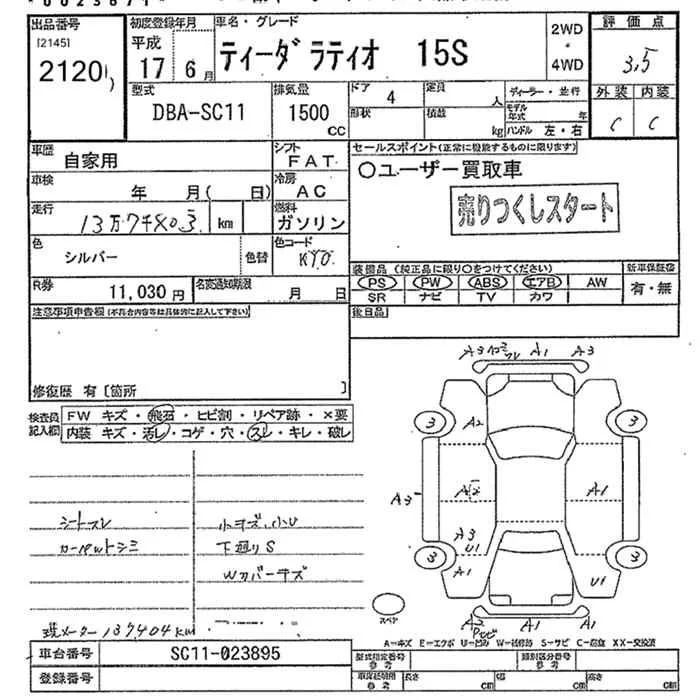 出品番号
[2145]
2120
初度登録年月
平成
17年 6月
車名・グレード
ティーダ ラティオ 15S
2WD
・
4WD
評価点
3.5
型式
DBA-SC11
排気量
1500
CC
ドア
4
定員
人
形状
積載
kg
ディーラー・並行
モデル年式 年
ハンドル 左・右
外装 内装
C C
車歴
自家用
シフト
FAT
車検
年 月( 日)
冷房
AC
走行
km
燃料
ガソリン
色
シルバー
色替
色コード
KY0
R券
11,030円
名変通知期限
月 日
セールスポイント(正常に機能するものに限ります)
○ユーザー買取車
売りつくしスタート
装備品(純正品に限り○をつけてください)
新車保証書
PS PW ABS エアB AW
有・無
SR ナビ TV カワ
後日品
注意事項申告欄(不具合内容等は具体的に記入して下さい)
修復歴 有〔箇所 〕
検査員記入欄
FW キズ・飛石・ヒビ割・リペア跡・×要
内装 キズ・汚レ・コゲ・穴・スレ・キレ・破レ
シートスレ
小キズ、小U
下廻りS
Wカバーキズ
現メーター137404km
A3
A1
A3
3
A2
3
A3
A2
A1
A3
U1
3
A1
U1
3
スペア
A2
A1
A1
A=キズ E=エクボ U=凹み W=補修跡 S=サビ C=腐食 XX=交換済
車台番号
SC11-023895
登録番号
型式指定番号
参考
類別区分番号
参考
長さ
cm
幅
cm
高さ
cm